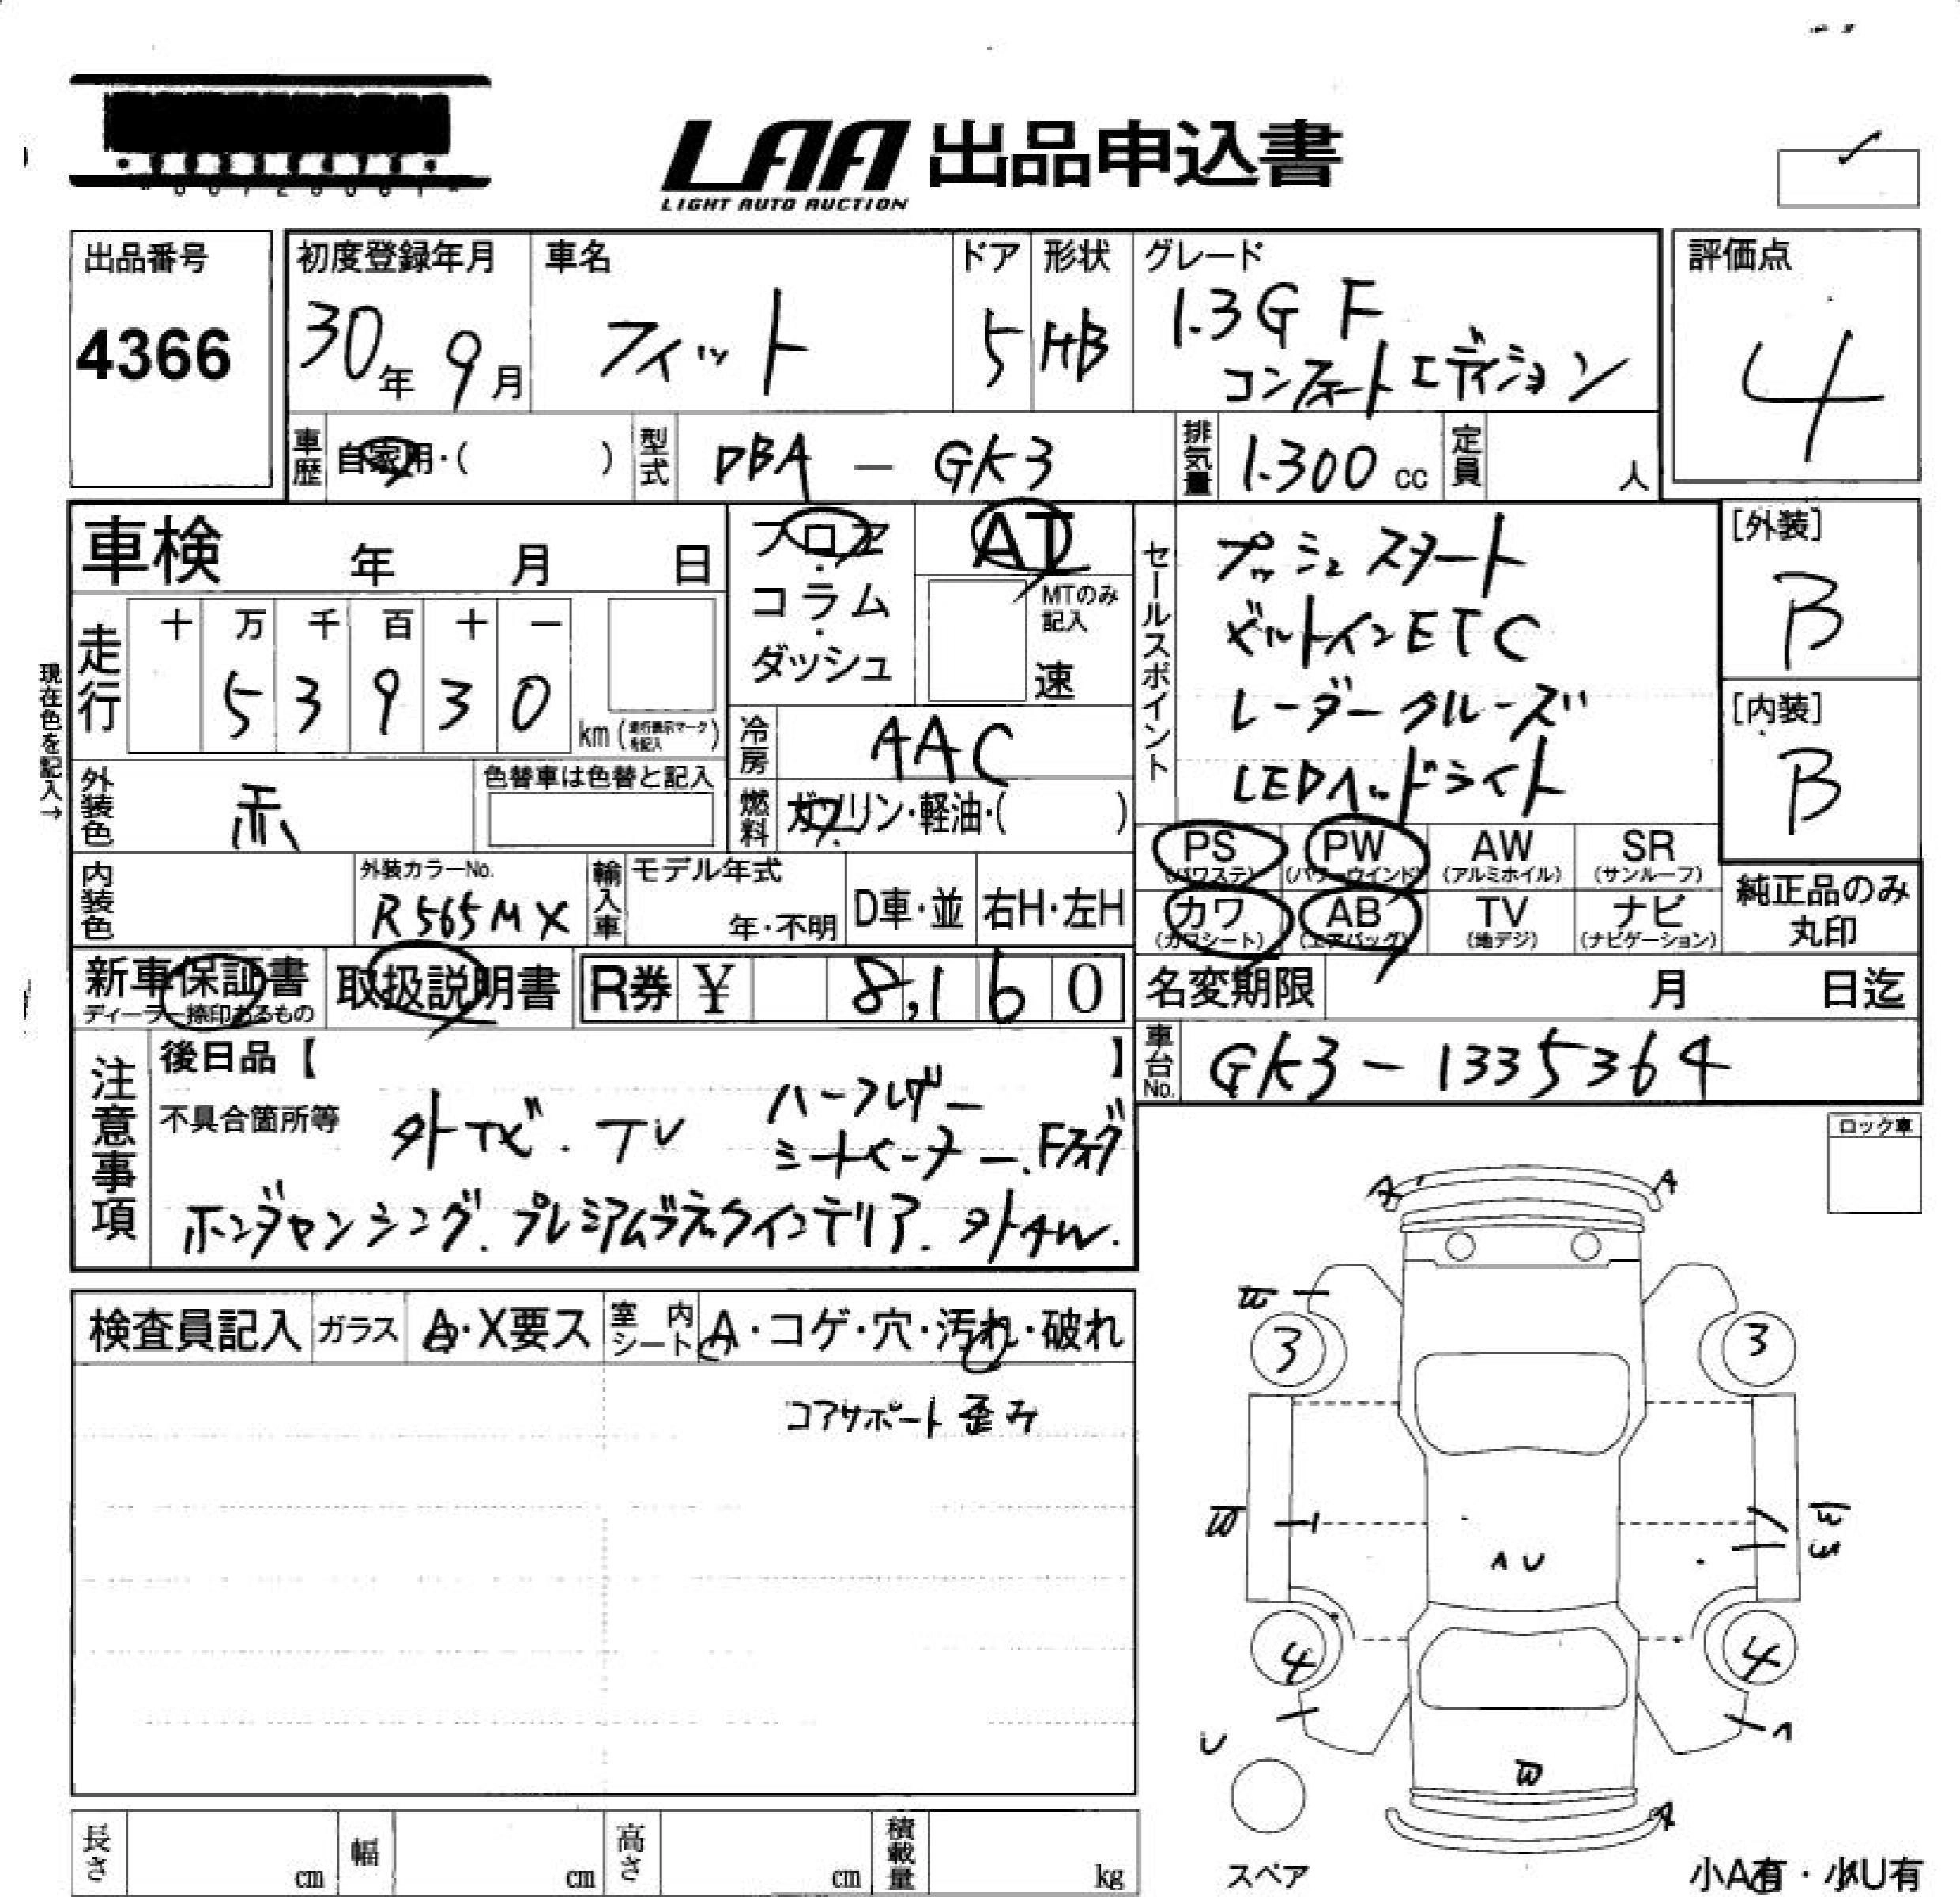 LAA 出品申込書
LIGHT AUTO AUCTION
出品番号
4366
初度登録年月
30年 9月
車名
フィット
ドア
5
形状
HB
グレード
1.3G F
コンフォートエディション
評価点
4
車歴
自家用・( )
型式
DBA - GK3
排気量
1.300 cc
定員
人
車検 年 月 日
フロア
コラム
ダッシュ
AT
MTのみ
記入
速
セールスポイント
プッシュスタート
ビルトインETC
レーダークルーズ
LEDヘッドライト
[外装]
B
[内装]
B
現在色を記入→
走行
十 万 千 百 十 一
5 3 9 3 0
km (走行表示マークを記入)
冷房
AAC
外装色
赤
色替車は色替と記入
燃料
ガソリン・軽油・( )
PS
(パワステ)
PW
(パワーウインド)
AW
(アルミホイル)
SR
(サンルーフ)
カワ
(カワシート)
AB
(エアバッグ)
TV
(地デジ)
ナビ
(ナビゲーション)
純正品のみ
丸印
内装色
外装カラーNo.
R565MX
輸入車
モデル年式
年・不明
D車・並
右H・左H
新車保証書
ディーラー捺印あるもの
取扱説明書
R券 ¥ 8,160
名変期限 月 日迄
車台No.
GK3-1335364
注意事項
後日品【 】
不具合箇所等
外ナビ. TV
ハーフレザー
シートヒーター. Fフォグ
ホンダセンシング. プレミアムブラックインテリア. 外AW.
ロック車
検査員記入
ガラス
A・X要ス
室内
シート
A・コゲ・穴・汚れ・破れ
コアサポート歪み
A
A
W
3
3
W
W
W
A U
4
4
U
A
W
A
スペア
長さ cm
幅 cm
高さ cm
積載量 kg
小A有・小U有